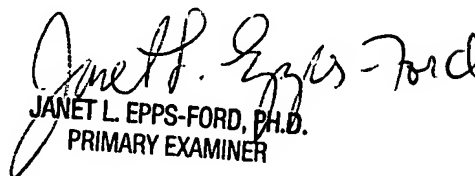 Janet L. Epps-Ford
JANET L. EPPS-FORD, PH.D.
PRIMARY EXAMINER